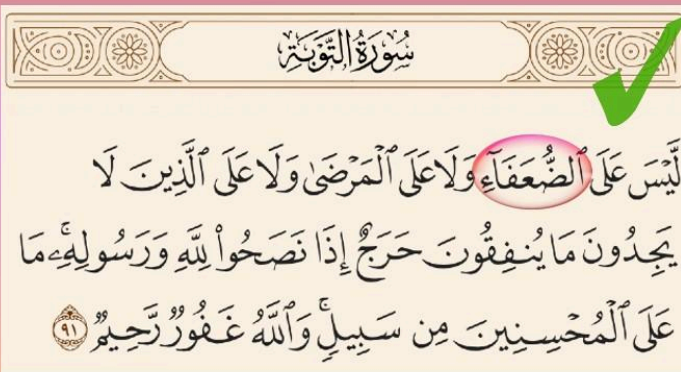 سُورَةُ التَّوْبَةِ
لَّيْسَ عَلَى ٱلضُّعَفَآءِ وَلَا عَلَى ٱلْمَرْضَىٰ وَلَا عَلَى ٱلَّذِينَ لَا
يَجِدُونَ مَا يُنفِقُونَ حَرَجٌ إِذَا نَصَحُوا۟ لِلَّهِ وَرَسُولِهِۦۚ مَا
عَلَى ٱلْمُحْسِنِينَ مِن سَبِيلٍۚ وَٱللَّهُ غَفُورٌ رَّحِيمٌ ٩١